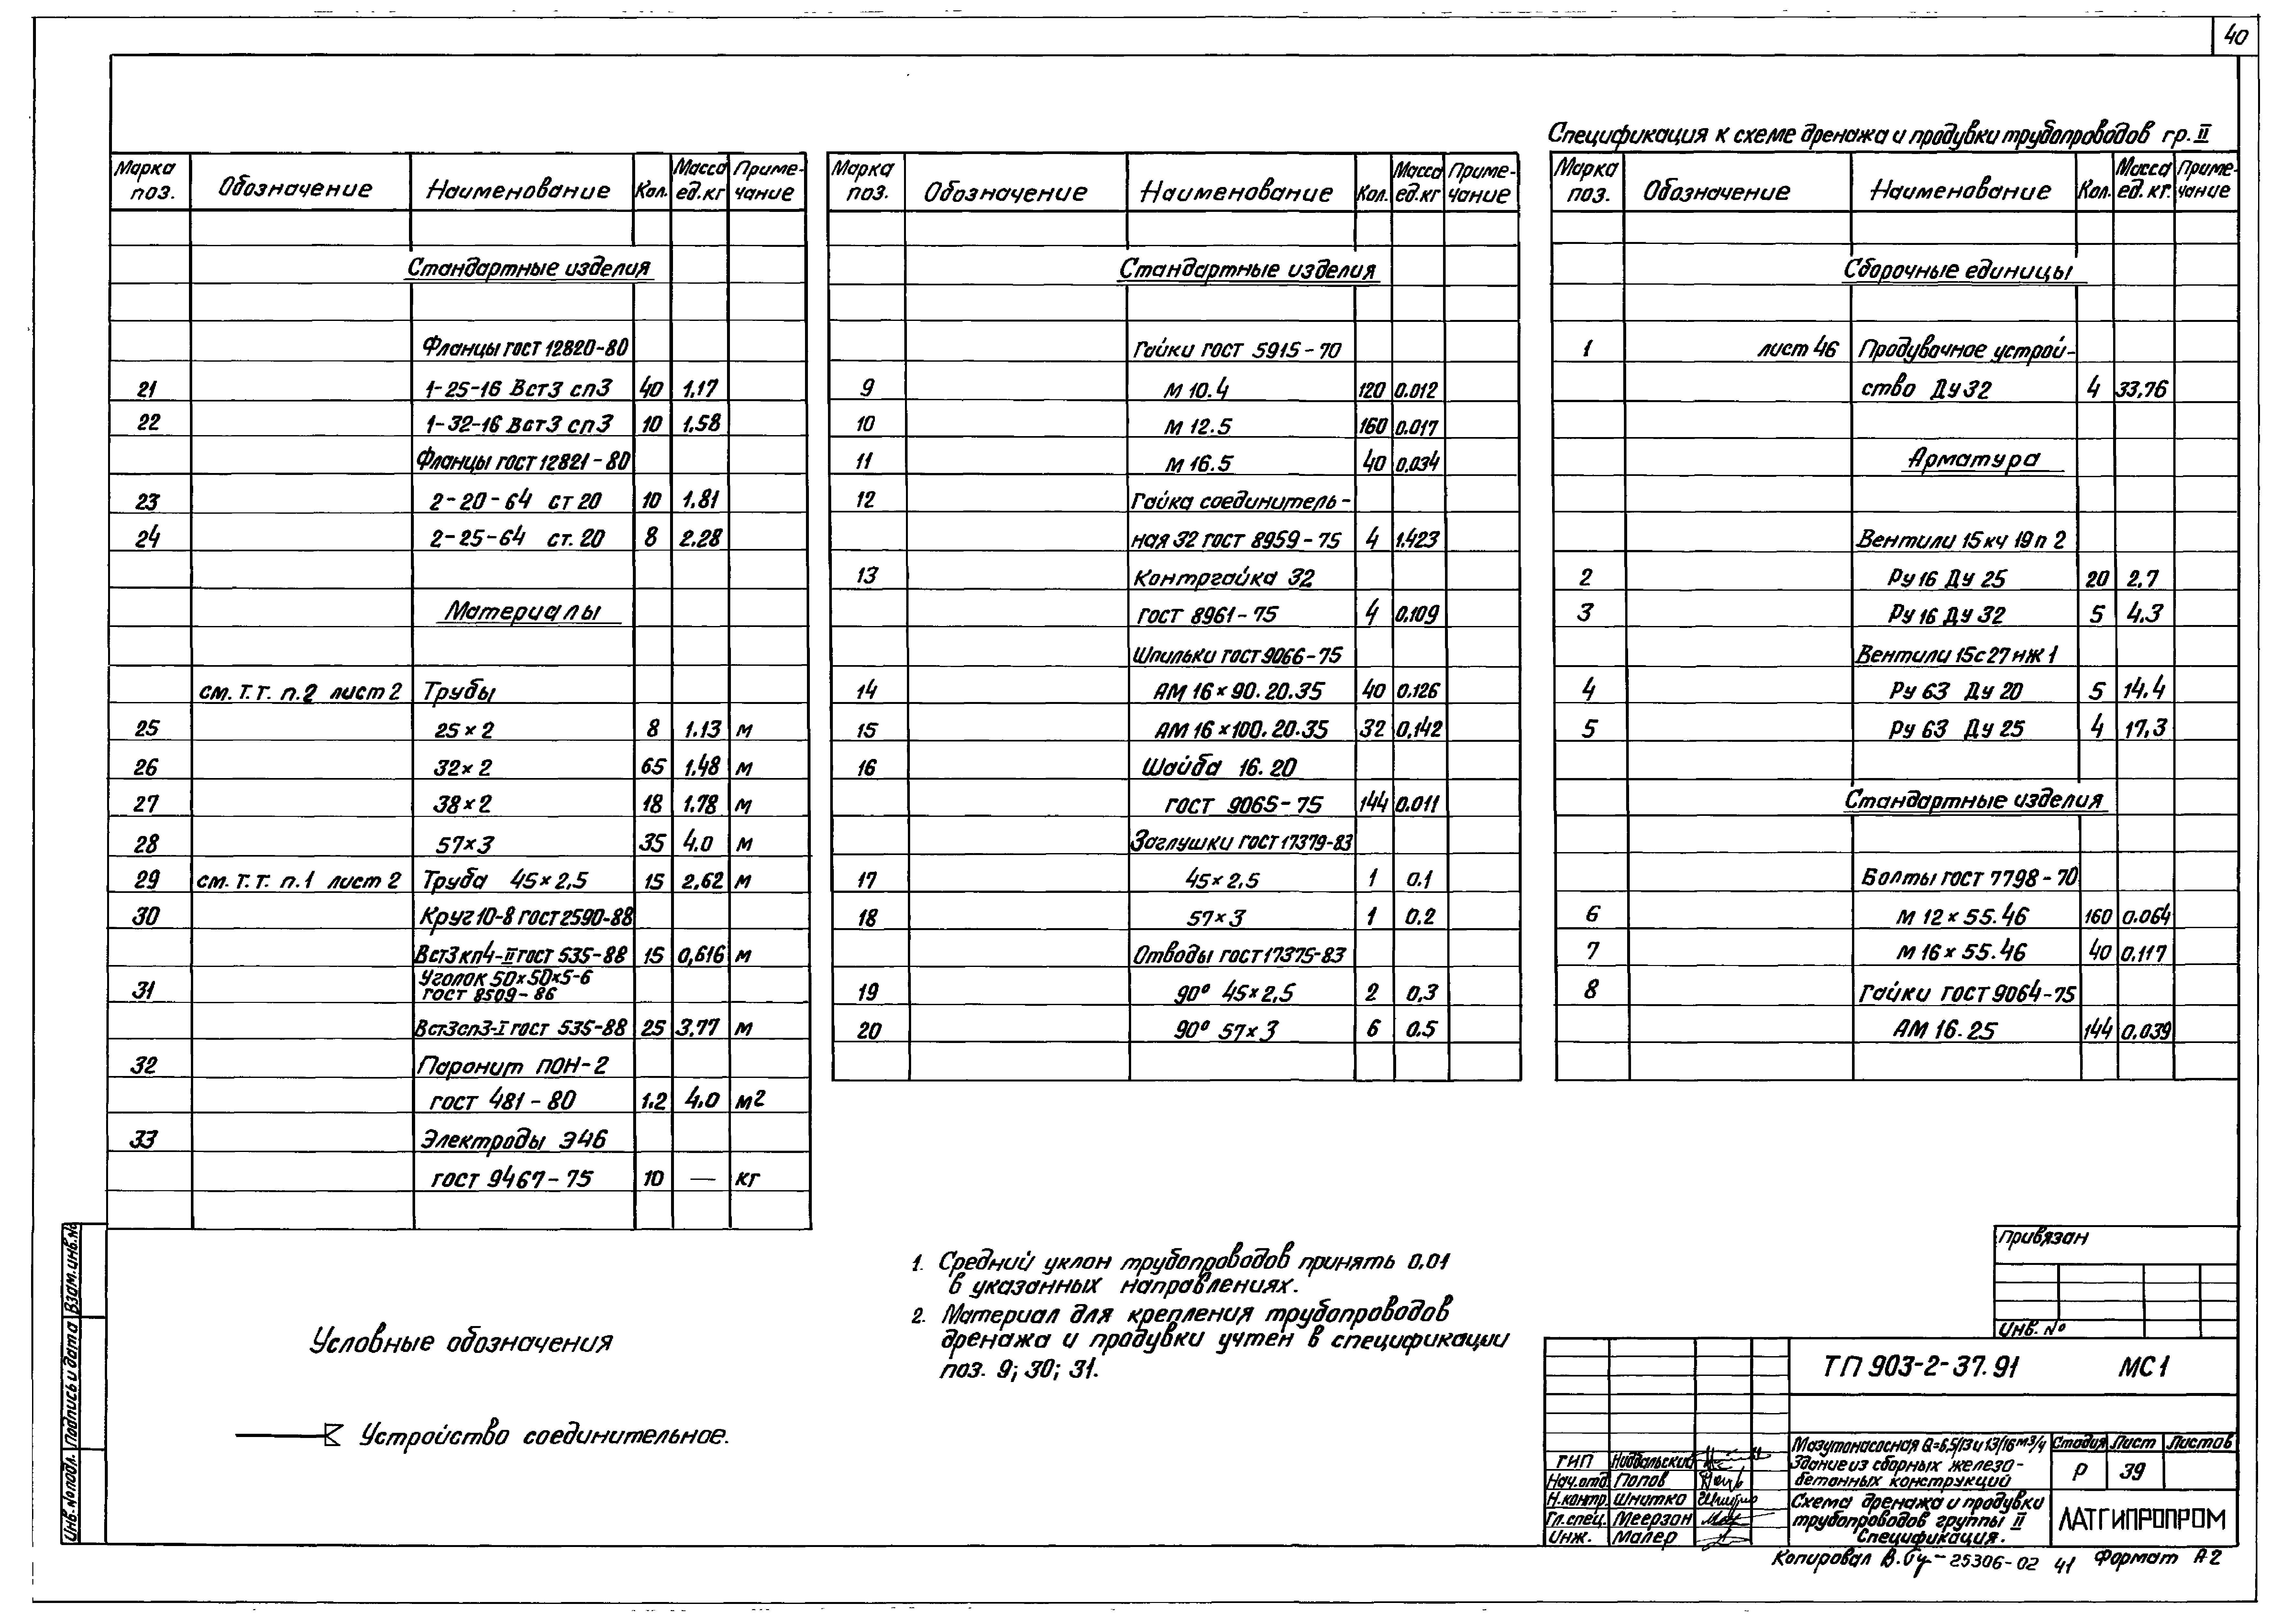 40
Марка поз. Обозначение Наименование Кол. Масса ед.кг Примечание
Стандартные изделия
Фланцы гост 12820-80
21 1-25-16 Вст3 сп3 40 1,17
22 1-32-16 Вст3 сп3 10 1.58
Фланцы гост 12821-80
23 2-20-64 ст 20 10 1.81
24 2-25-64 ст. 20 8 2.28
Материалы
см. Т.Т. п.2 лист 2 Трубы
25 25×2 8 1.13 м
26 32×2 65 1.48 м
27 38×2 18 1.78 м
28 57×3 35 4.0 м
29 см. Т.Т. п.1 лист 2 Труба 45×2,5 15 2,62 м
30 Круг 10-8 гост 2590-88
Вст3кп4-II гост 535-88 15 0,616 м
31 Уголок 50×50×5-6
гост 8509-86
Вст3сп3-I гост 535-88 25 3,77 м
32 Паронит ПОН-2
гост 481-80 1.2 4.0 м2
33 Электроды Э46
гост 9467-75 10 — кг
Марка поз. Обозначение Наименование Кол. Масса ед.кг Примечание
Стандартные изделия
Гайки гост 5915-70
9 М 10.4 120 0.012
10 М 12.5 160 0.017
11 М 16.5 40 0,034
12 Гайка соединитель-
ная 32 гост 8959-75 4 1.423
13 Контргайка 32
гост 8961-75 4 0.109
Шпильки гост 9066-75
14 АМ 16×90.20.35 40 0.126
15 АМ 16×100.20.35 32 0,142
16 Шайба 16.20
гост 9065-75 144 0.011
Заглушки гост 17379-83
17 45×2,5 1 0.1
18 57×3 1 0.2
Отводы гост 17375-83
19 90° 45×2,5 2 0,3
20 90° 57×3 6 0.5
Спецификация к схеме дренажа и продувки трубопроводов гр. II
Марка поз. Обозначение Наименование Кол. Масса ед. кг. Примечание
Сборочные единицы
1 лист 46 Продувочное устрой-
ство Ду 32 4 33,76
Арматура
Вентили 15кч 19п 2
2 Ру 16 Ду 25 20 2,7
3 Ру 16 Ду 32 5 4.3
Вентили 15с27нж1
4 Ру 63 Ду 20 5 14.4
5 Ру 63 Ду 25 4 17,3
Стандартные изделия
Болты гост 7798-70
6 М 12×55.46 160 0.064
7 М 16×55.46 40 0.117
8 Гайки гост 9064-75
АМ 16.25 144 0.039
1. Средний уклон трубопроводов принять 0,01
в указанных направлениях.
2. Материал для крепления трубопроводов
дренажа и продувки учтен в спецификации
поз. 9; 30; 31.
Условные обозначения
Устройство соединительное.
Взам.инв.№
Подпись и дата
Инв.№подл.
Привязан
Инв. №
ТП 903-2-37.91 МС1
Мазутонасосная Q=6,5/13 и 13/16 м3/ч
Здание из сборных железо-
бетонных конструкций
Стадия Лист Листов
Р 39
Схема дренажа и продувки
трубопроводов группы II
Спецификация.
ЛАТГИПРОПРОМ
ГИП
Нач.отд. Попов
Н.контр. Шнитко
Гл.спец. Меерзон
Инж. Малер
Копировал 25306-02 41 Формат А2